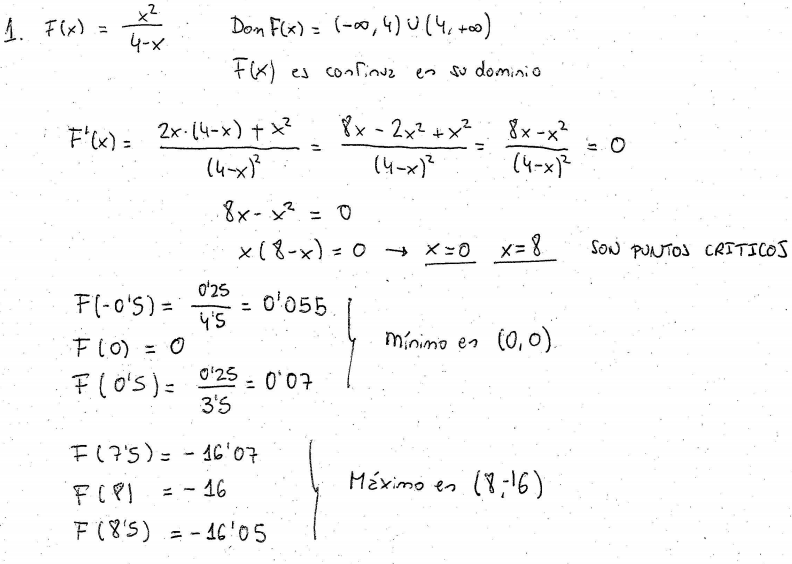 1. F(x) = x²/(4-x) Dom F(x) = (-∞, 4) ∪ (4, +∞)
F(x) es continua en su dominio
F'(x) = (2x·(4-x) + x²)/(4-x)² = (8x - 2x² + x²)/(4-x)² = (8x - x²)/(4-x)² = 0
8x - x² = 0
x(8-x) = 0 → x=0 x=8 SON PUNTOS CRITICOS
F(-0'5) = 0'25/4'5 = 0'055
F(0) = 0
Mínimo en (0,0)
F(0'5) = 0'25/3'5 = 0'07
F(7'5) = -16'07
F(8) = -16
Máximo en (8,-16)
F(8'5) = -16'05